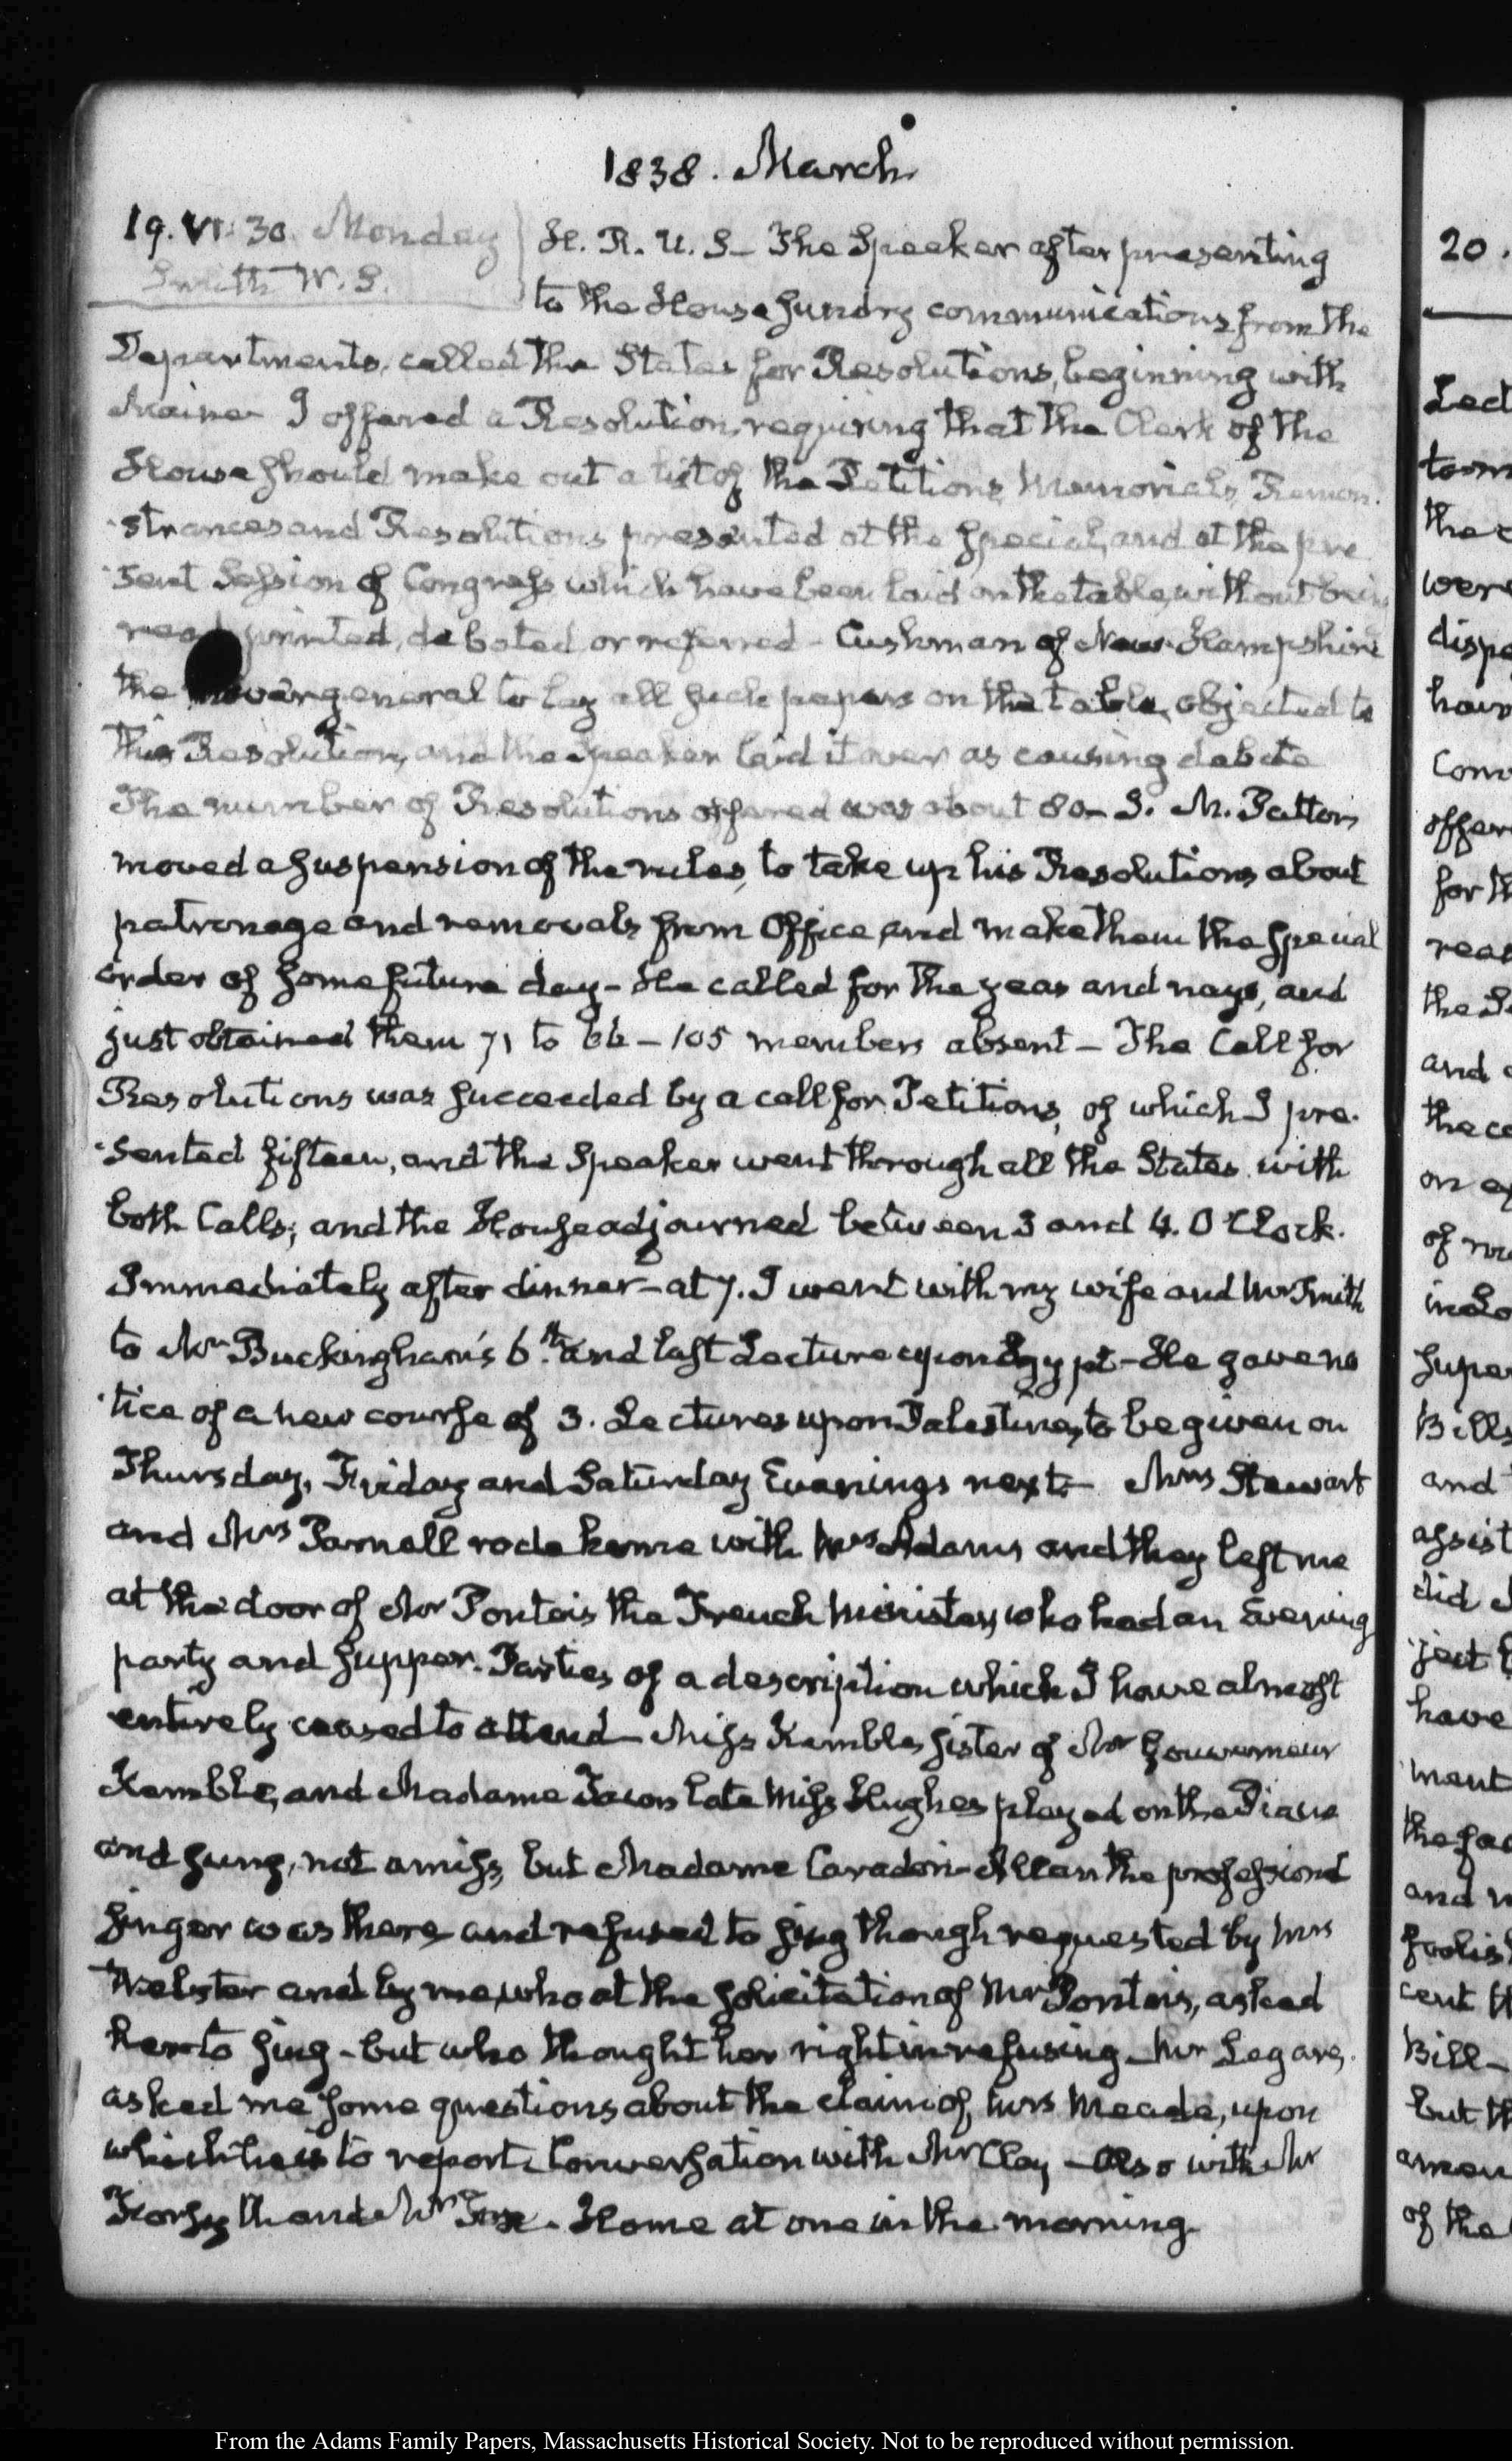 1838. March
19. VI: 30. Monday
Smith W. S.
H. R. U. S— The Speaker after presenting
to the House sundry communications from the
Departments, called the States for Resolutions, beginning with
Maine— I offered a Resolution, requiring that the Clerk of the
House should make out a list of the Petitions, Memorials, Remon-
-strances and Resolutions presented at the special, and at the pre
-sent Session of Congress which have been laid on the table, without being
read, printed, debated, or referred— Cushman of New-Hampshire
the mover general to lay all such papers on the table, objected to
this Resolution, and the Speaker laid it over as causing debate
The number of Resolutions offered was about 80— J. M. Patton
moved a suspension of the rules, to take up his Resolutions about
patronage and removals from Office, and make them the special
order of some future day— He called for the yeas and nays, and
just obtained them 71 to 66— 105 members absent— The Call for
Resolutions was succeeded by a call for Petitions, of which I pre-
-sented fifteen, and the Speaker went through all the States with
both Calls; and the House adjourned between 3 and 4. O'Clock.
Immediately after dinner— at 7. I went with my wife and Mr Smith
to Mr Buckingham's 6th and last Lecture upon Egypt— He gave no
-tice of a new course of 3. Lectures upon Palestine, to be given on
Thursday, Friday and Saturday Evenings next— Mrs Stewart
and Mrs Parnell rode home with Mrs Adams and they left me
at the door of Mr Pontois the French Minister, who had an Evening
party and supper. Parties of a description which I have almost
entirely ceased to attend— Miss Kemble, sister of Mr Gouverneur
Kemble, and Madame late Miss Hughes played on the Piano
and sung, not amiss, but Madame Caradori-Allan the professional
singer was there and refused to sing though requested by Mrs
Webster and by me, who at the solicitation of Mr Pontois, asked
her to sing— but who thought her right in refusing— Mr Legare,
asked me some questions about the claim of Mrs Meade, upon
which he is to report. Conversation with Mr Clay— Also with Mr
Forsyth and Mr Fox. Home at one in the morning.
20.
From the Adams Family Papers, Massachusetts Historical Society. Not to be reproduced without permission.